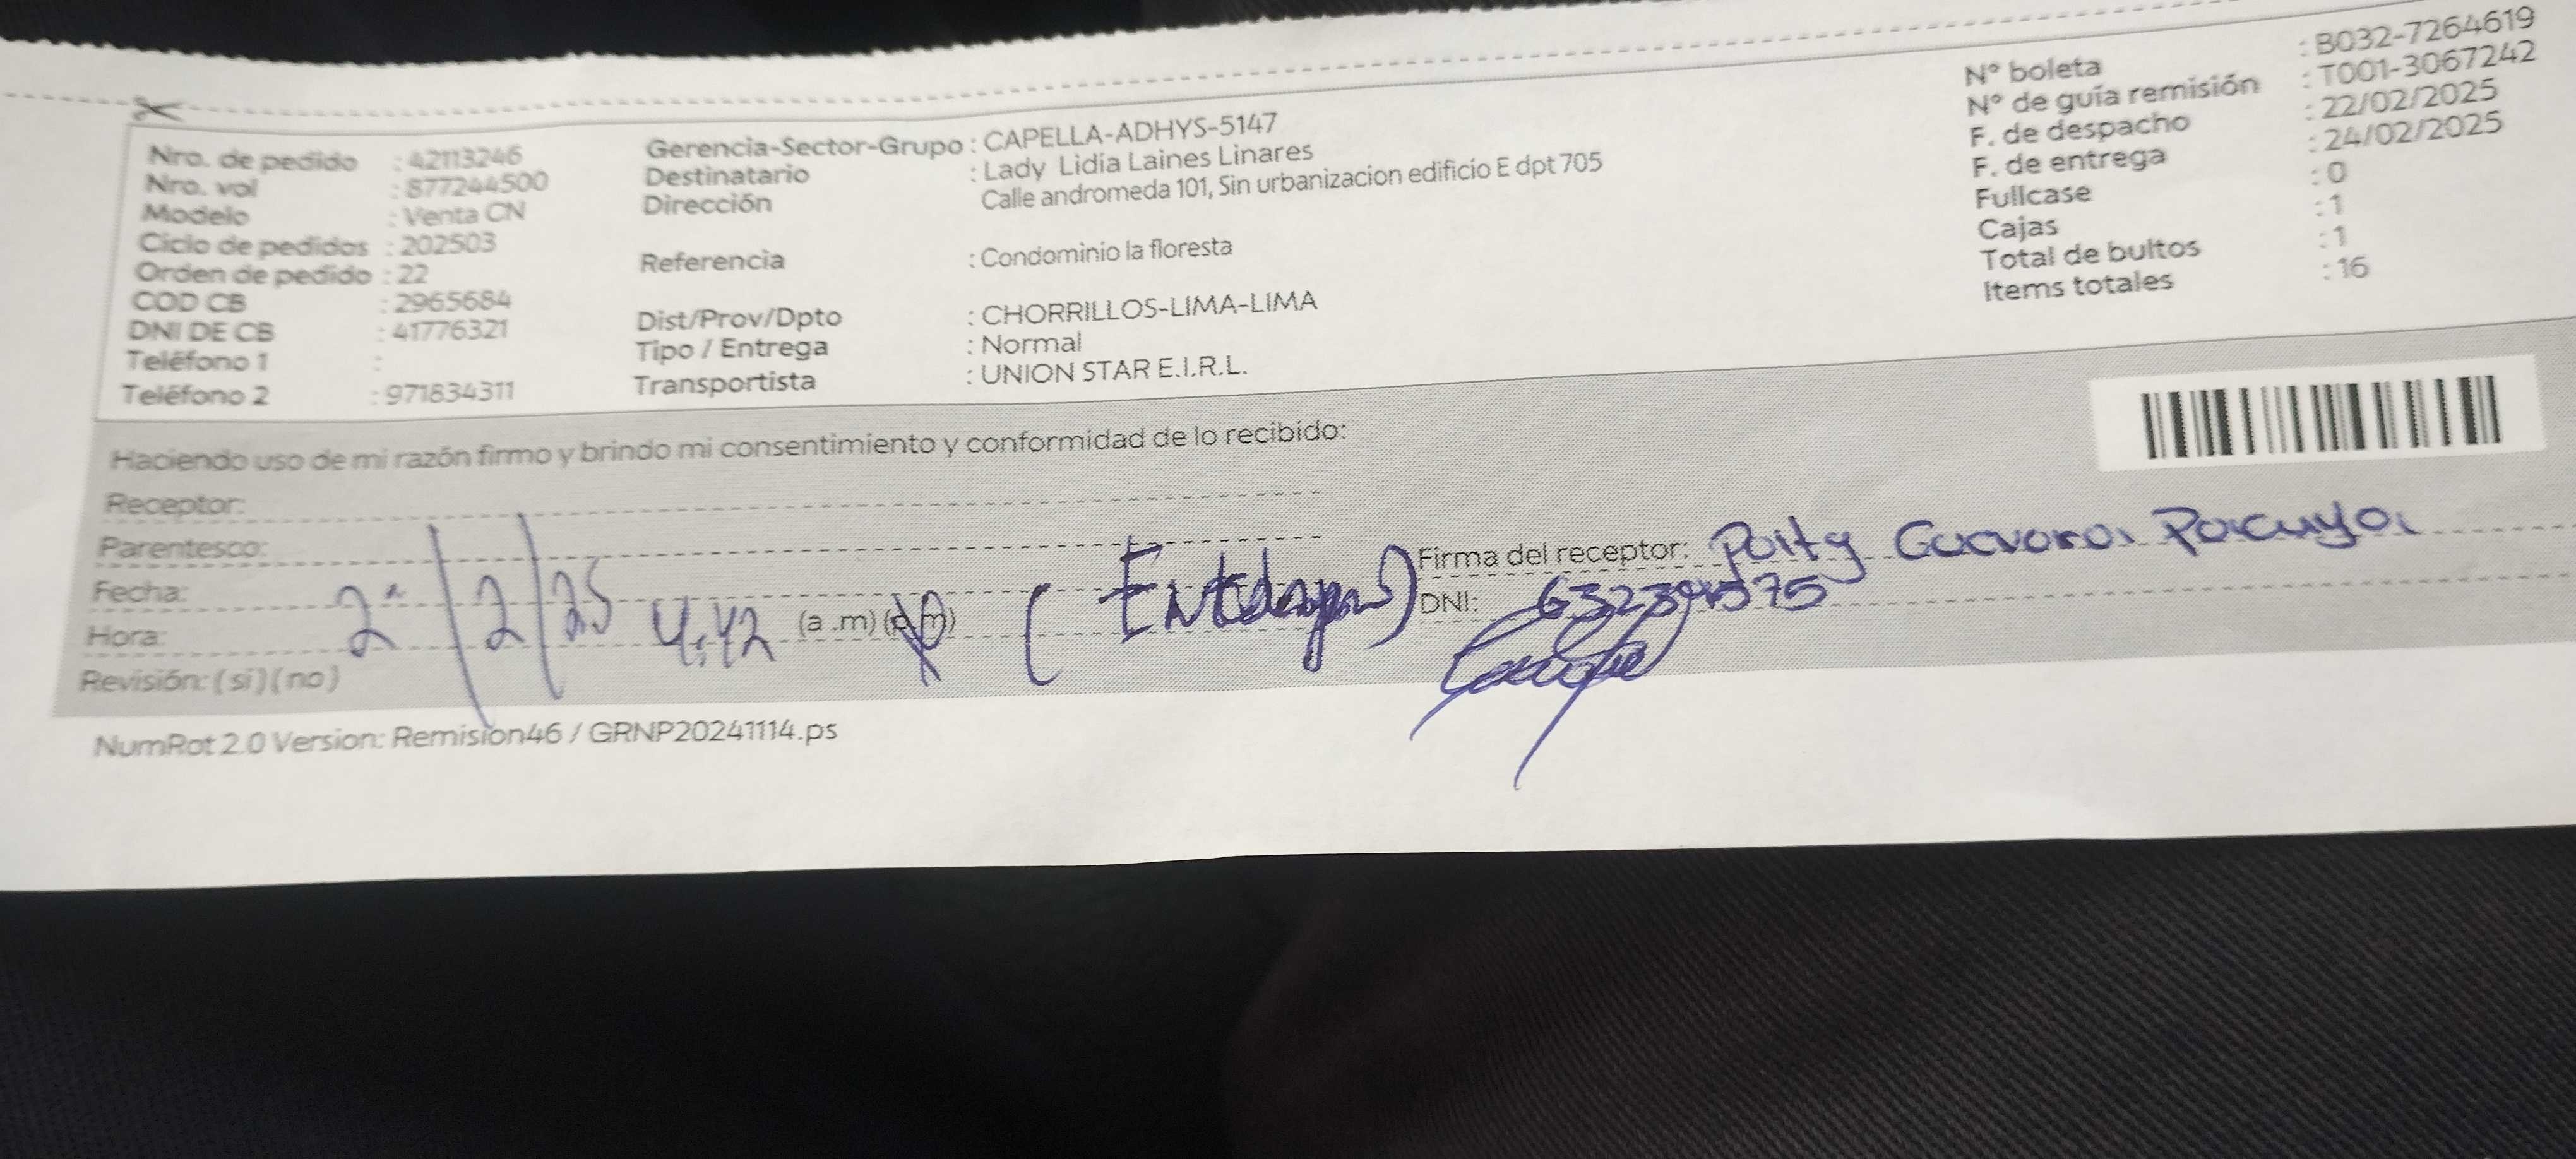 Nro. de pedido : 42113246
Nro. vol : 877244500
Modelo : Venta CN
Ciclo de pedidos : 202503
Orden de pedido : 22
COD CB : 2965684
DNI DE CB : 41776321
Teléfono 1 :
Teléfono 2 : 971834311
Gerencia-Sector-Grupo : CAPELLA-ADHYS-5147
Destinatario : Lady Lidia Laines Linares
Dirección Calle andromeda 101, Sin urbanizacion edificio E dpt 705
Referencia : Condominio la floresta
Dist/Prov/Dpto : CHORRILLOS-LIMA-LIMA
Tipo / Entrega : Normal
Transportista : UNION STAR E.I.R.L.
N° boleta : B032-7264619
N° de guía remisión : T001-3067242
F. de despacho : 22/02/2025
F. de entrega : 24/02/2025
Fullcase : 0
Cajas : 1
Total de bultos : 1
Items totales : 16
Haciendo uso de mi razón firmo y brindo mi consentimiento y conformidad de lo recibido:
Receptor:
Parentesco:
Fecha: /2/25
Hora: 4:42 (a .m) (p.m)
Revisión: ( si ) ( no )
Firma del receptor:
DNI:
NumRot 2.0 Version: Remision46 / GRNP20241114.ps